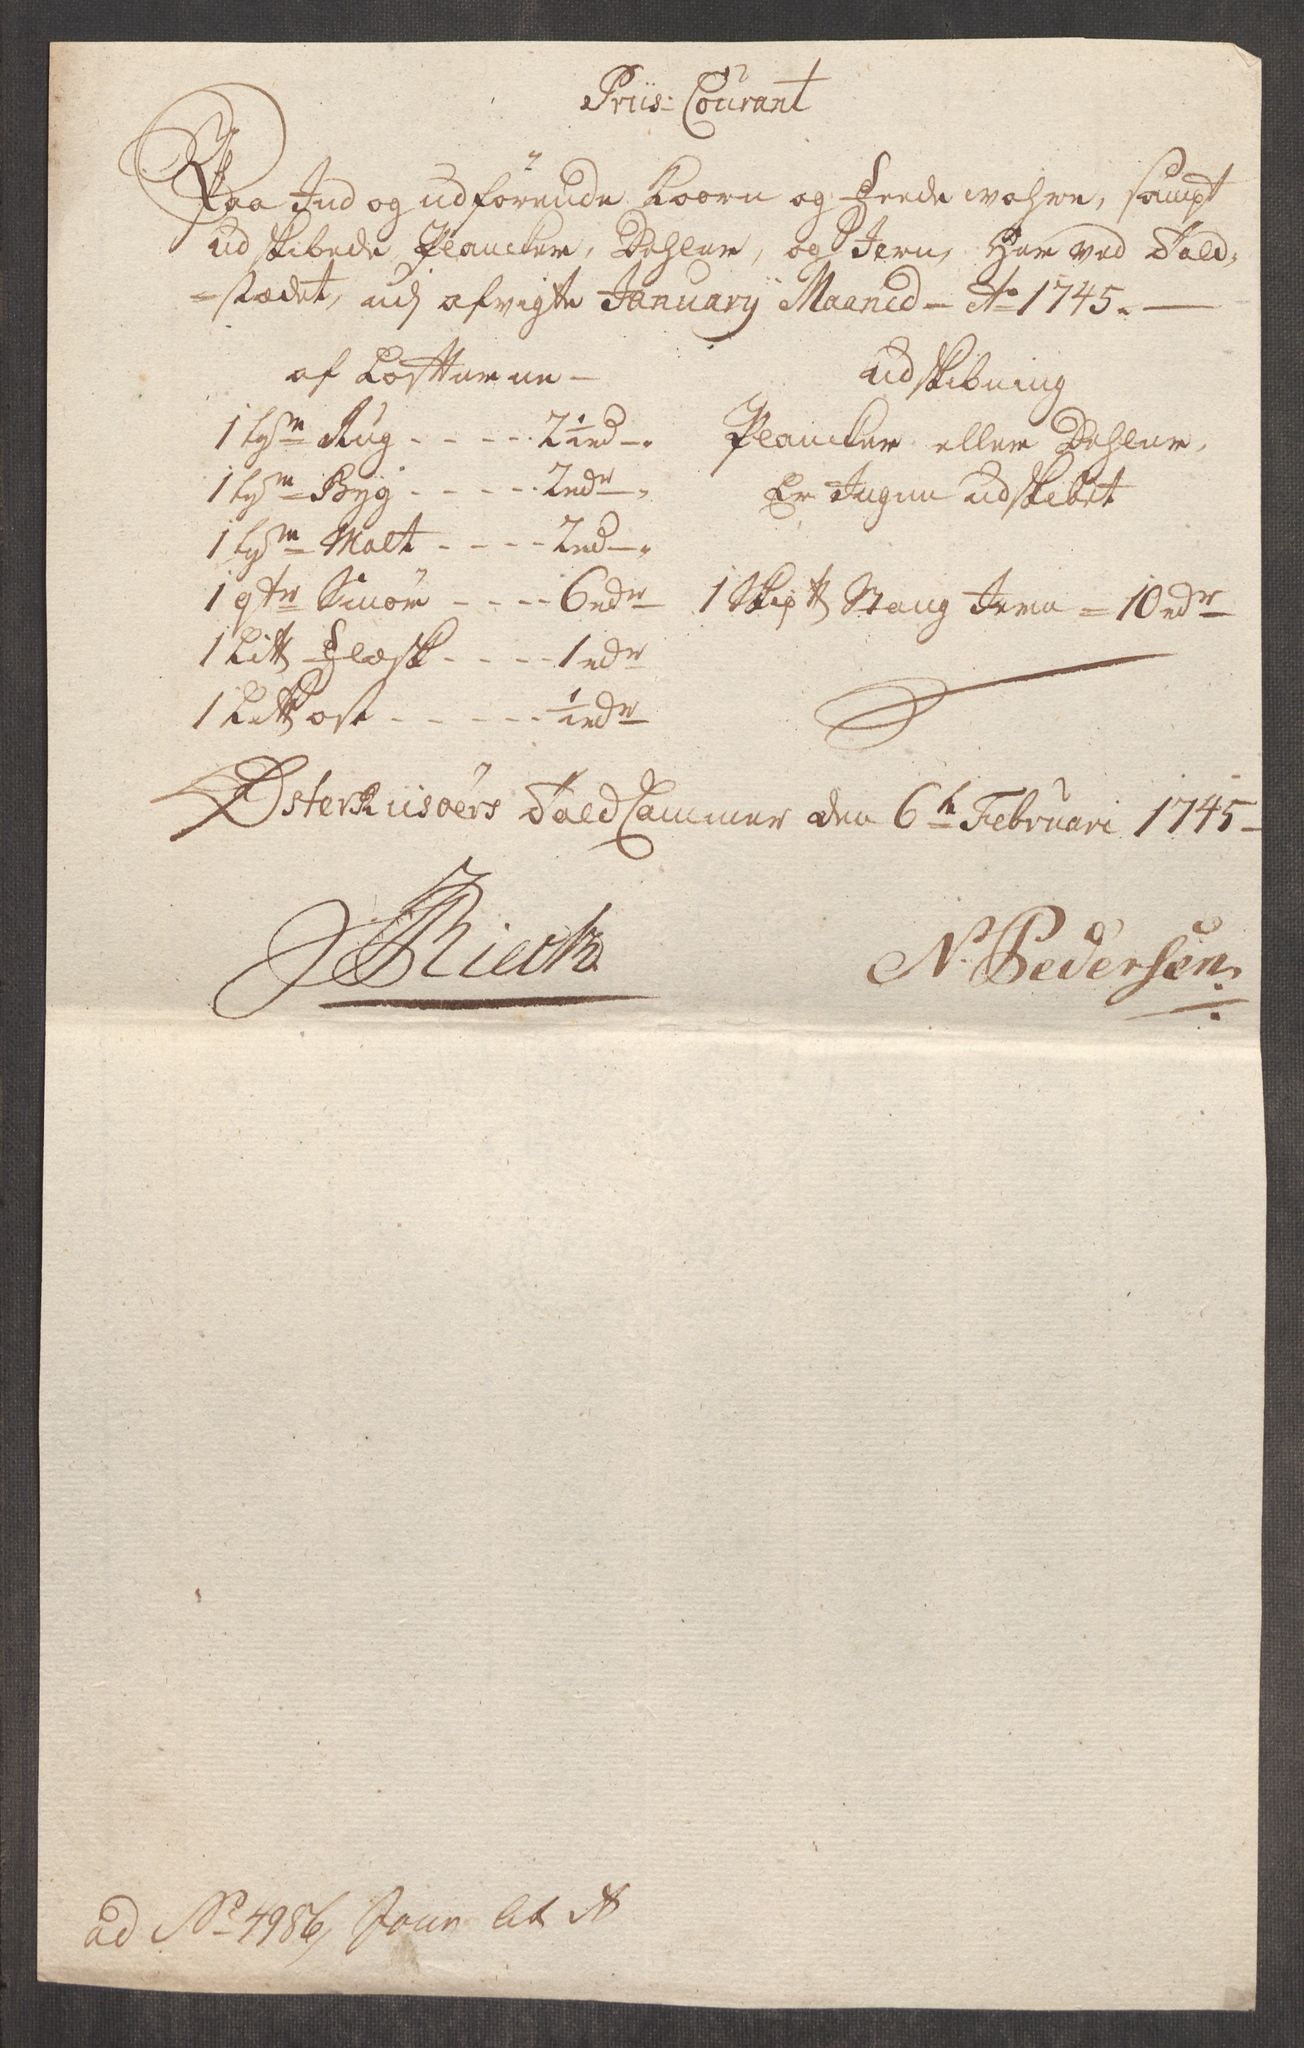 Priis-Courant
Paa Ind og udförende Koorn og Feede wahre, sampt
udskibede Plancker, Dehler, og Jern, Her ved Told-
=stædet, udj afvigte Januarÿ Maaned - Ao 1745. -
af Kosterne -
1 tøn Rug - - - - - 2½ rd -
1 tøn Byg - - - - - 2 rdr -
1 tøn Malt - - - - 2 rd -
1 qtr Smör - - - - 6 rdr
1 Li℔ Flæsk - - - - 1 rdr
1 Li℔ ost - - - - - ½ rdr
Udskibning
Plancker eller Dehler,
Er Ingen udskibet
1 Skip℔ Stang Jern = 10 rdr
ØsterRiisöers Told Cammer den 6h Februari 1745 -
Rieck
N. Pedersen.
ad No 4986 Jour Lit A